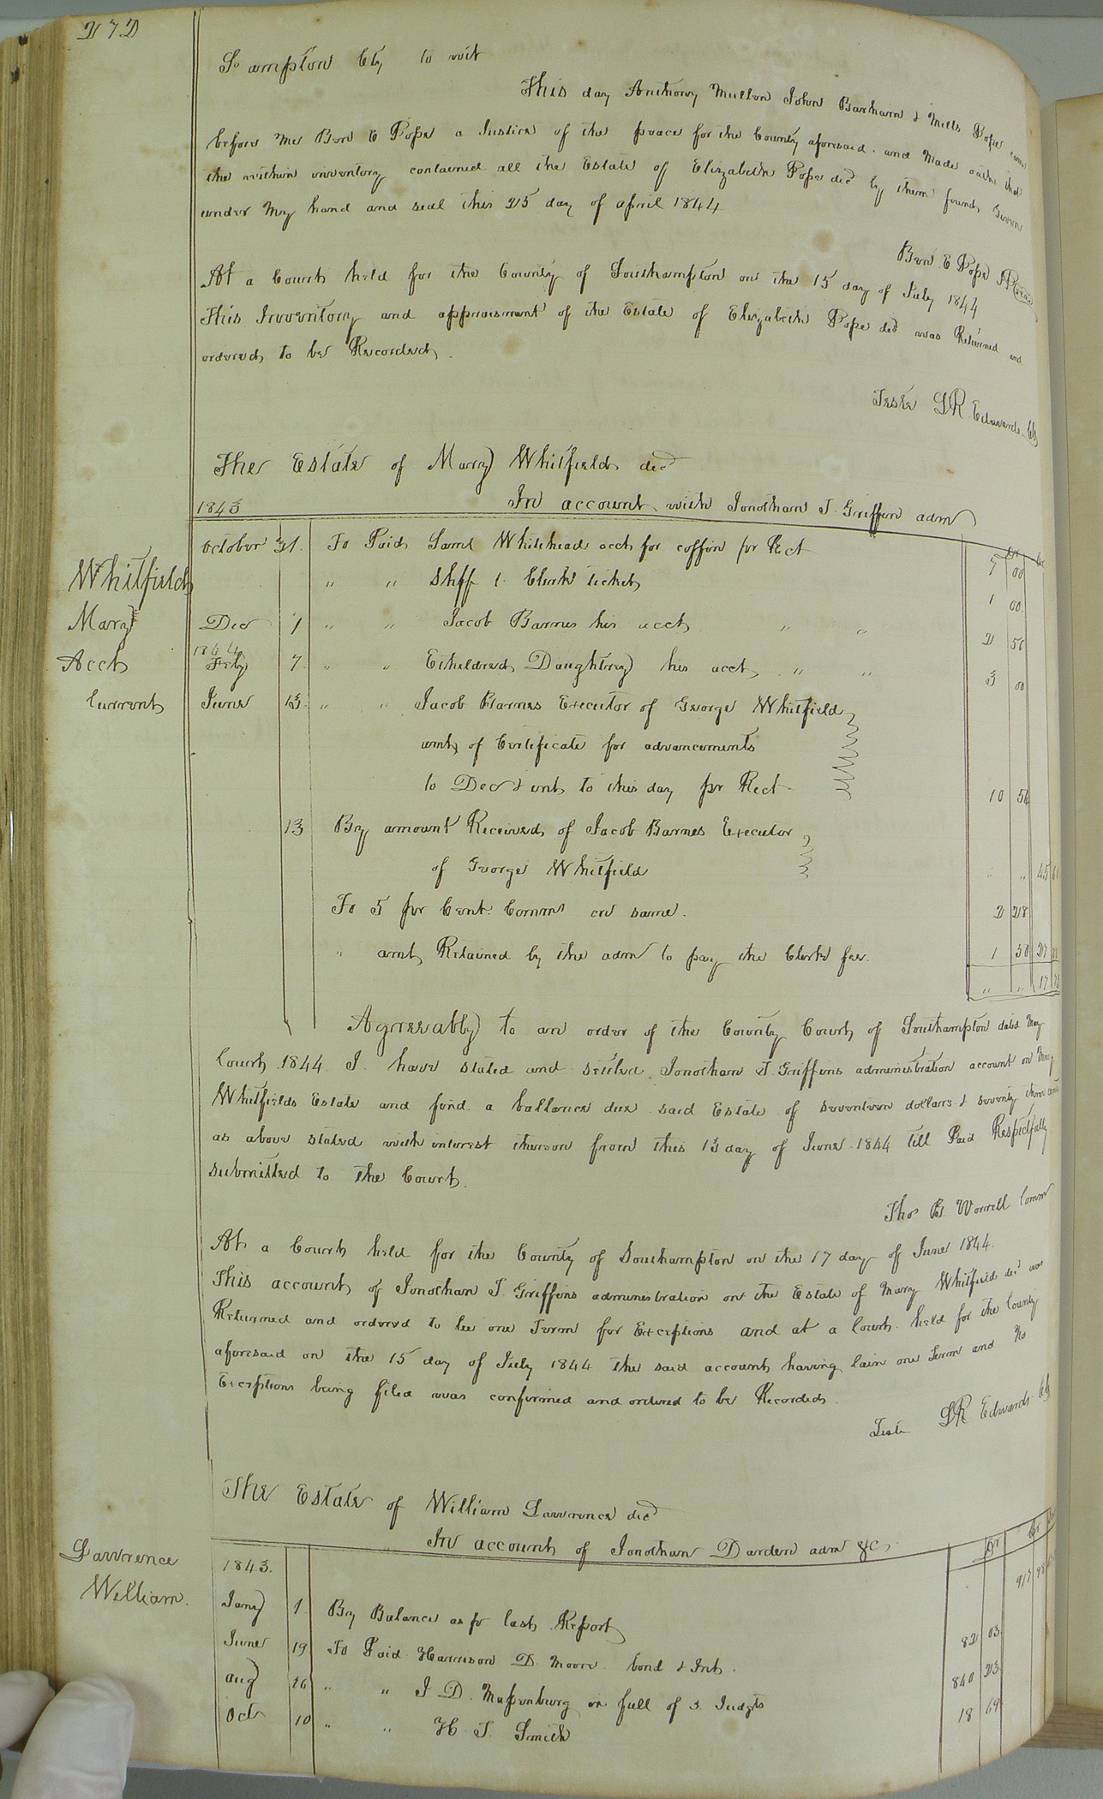 272
So ampton Cty to wit
This day Anthony Mullen John Barham & Mills Pope came
before me Ben E Pope a Justice of the peace for the County aforesaid and made oath that
the within inventory contained all the Estate of Elizabeth Pope decd by them found Given
under my hand and seal this 25 day of april 1844
Ben. E Pope JP
At a Court held for the County of Southampton on the 15 day of July 1844
This Inventory and appraisment of the Estate of Elizabeth Pope decd was Returned and
ordered to be Recorded.
Teste LR Edwards Clk
The Estate of Mary Whitfield decd
1843 In account with Jonathan T. Griffin adm
Dr Cr
Whitfield
Mary
Acct
Current
October 31. To Paid Saml Whitehead acct for coffin pr Rect 5 00
" " Shff & Clerks tickets 1 00
Dec 1 " " Jacob Barnes his acct " " 2 56
1844
Feby 7 " " Etheldred Daughtrey his acct " " 3 00
June 13 " " Jacob Barnes Executor of George Whitfield
amt of Certificate for advancements
to Decd & int to this day pr Rect 10 56
13 By amount Received of Jacob Barnes Executor
of George Whitfield " " 45
To 5 per Cent Comms on same. 2 28
" amt Retained by the adm to pay the Clerks fee. 1 50 27
" " 17
Agreeably to an order of the County Court of Southampton dated May
Court 1844 I have stated and settled Jonathan T. Griffins administration account on Mary
Whitfields Estate and find a ballance due said Estate of seventeen dollars & seventy three cents
as above stated with interest thereon from this 13 day of June 1844 till Paid Respectfully
submitted to the Court.
Thos B. Worrell Commr
At a Court held for the County of Southampton on the 17 day of June 1844.
This account of Jonathan T. Griffins administration on the Estate of Mary Whitfield decd was
Returned and ordered to lie one Term for Exceptions and at a Court held for the County
aforesaid on the 15 day of July 1844 the said account having lain one Term and No
Exceptions being filed was confirmed and ordered to be Recorded
Teste LR Edwards Clk
The Estate of William Lawrence decd
In account of Jonathan Darden adm &c
Dr Cr
Lawrence
William.
1843.
Jany 1 By Balance as pr last Report 917 98
June 19 To Paid Harrison D. Moore bond & Int. 82 03
aug 26 " " J D. Massenburg in full of 3 Judgts 840 23
Oct 10 " " H. T. Smith 18 69